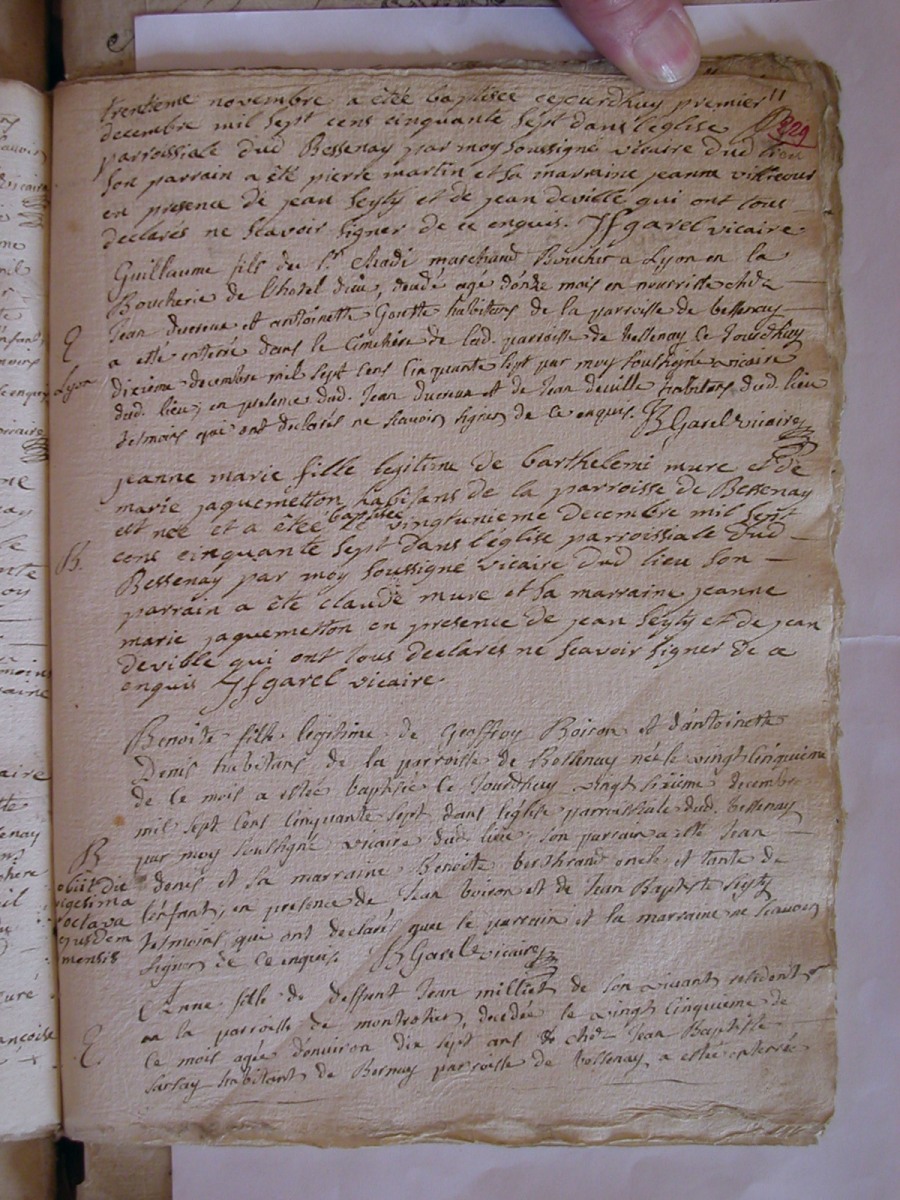 trentieme novembre a étée baptisée cejourdhuy premier
decembre mil sept cens cinquante sept dans l'eglise
229
parroissiale dud Bessenay par moy soussigné vicaire dud lieu
son parrain a été pierre martin et sa marraine jeanne
en presence de jean seyty et de jean deville qui ont tous
declarés ne scavoir signer de ce enquis. Jfgarel vicaire
Guillaume fils du Sr. marchand Boucher a Lyon en la
Boucherie de l'hotel dieu, decedé agé d'onze mois en nourrisse chéz
Jean ducreux et antoinette habitans de la parroisse de bessenay
a esté enterré dans le cimetière de lad. parroisse de bessenay ce Jourdhuy
E
Lyon
dixième decembre mil sept cens cinquante sept par moy soussigné vicaire
dud. lieu, en présence dud. Jean ducreux et de Jean deville habitans dud. lieu
tesmoins qui ont declarés ne scauoir signer de ce enquis. JfGarel vicaire
jeanne marie fille legitime de barthelemi mure et de
marie jaquemetton habitans de la parroisse de Bessenay
est née et a étée baptisée le vingtunieme decembre mil sept
cens cinquante sept dans l'eglise parroissiale dud
B.
Bessenay par moy soussigné vicaire dud lieu son
parrain a été claude mure et sa marraine jeanne
marie jaquemetton en presence de jean seyty et de jean
deville qui ont tous declarés ne scavoir signer de ce
enquis Jfgarel vicaire.
Benoite fille légitime de Geoffroy Boiron et d'antoinette
Denis habitans de la parroisse de Bessenay née le vingt cinquieme
de ce mois a estée baptisée ce Jourdhuy vingt sixième decembre
mil sept cens cinquante sept dans l'église parroissiale dud. bessenay
par moy soussigné vicaire dud. lieu; son parrain a esté Jean
denis et sa marraine Benoite berthrand oncle et tante de
l'enfant, en présence de Jean boiron et de Jean Baptiste seyty
tesmoins, qui ont declarés que le parrain et la marraine ne scauoir
signer de ce enquis. JfGarel vicaire
B
obiit die
vigesima
octava
ejusdem
mensis
Anne fille de deffunt Jean milliet de son vivant résident
en la parroisse de montrotier, decedée le vingt cinquieme de
ce mois agée d'environ dix sept ans chéz Jean Baptiste
sarsay habitant de Bernay parroisse de bessenay, a estée enterrée
E